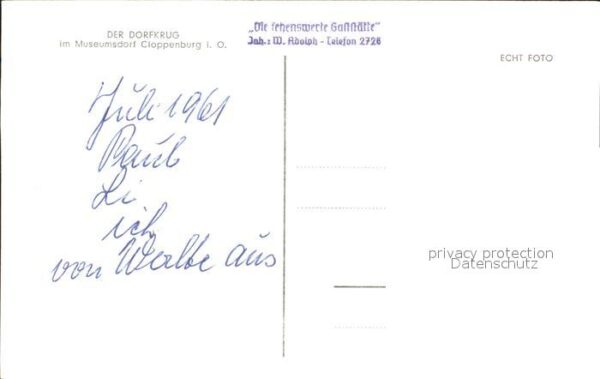 DER DORFKRUG
im Museumsdorf Cloppenburg i. O.
„Die sehenswerte Gaststätte“
Inh.: W. Adolph - Telefon 2726
ECHT FOTO
Juli 1961
Paul
Li
ich
von Werlte aus
privacy protection
Datenschutz